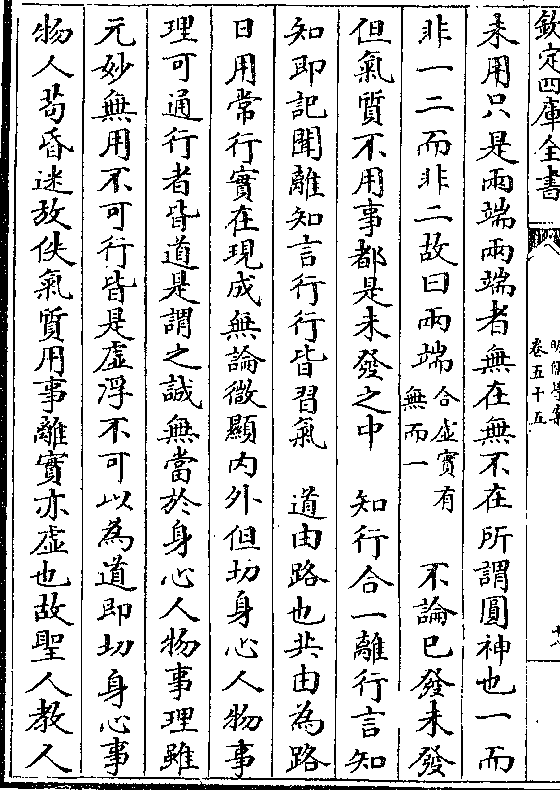 欽定四庫全書
卷五十五
未用只是兩端兩端者無在無不在所謂圓神也一而
非一二而非二故曰兩端合虛實有無而一　不論已發未發
但氣質不用事都是未發之中　知行合一離行言知
知即記聞離知言行行皆習氣　道由路也共由為路
日用常行實在現成無論微顯內外但切身心人物事
理可通行者皆道是謂之誠無當於身心人物事理雖
元妙無用不可行皆是虛浮不可以為道即切身心事
物人苟昏迷放佚氣質用事離實亦虛也故聖人教人